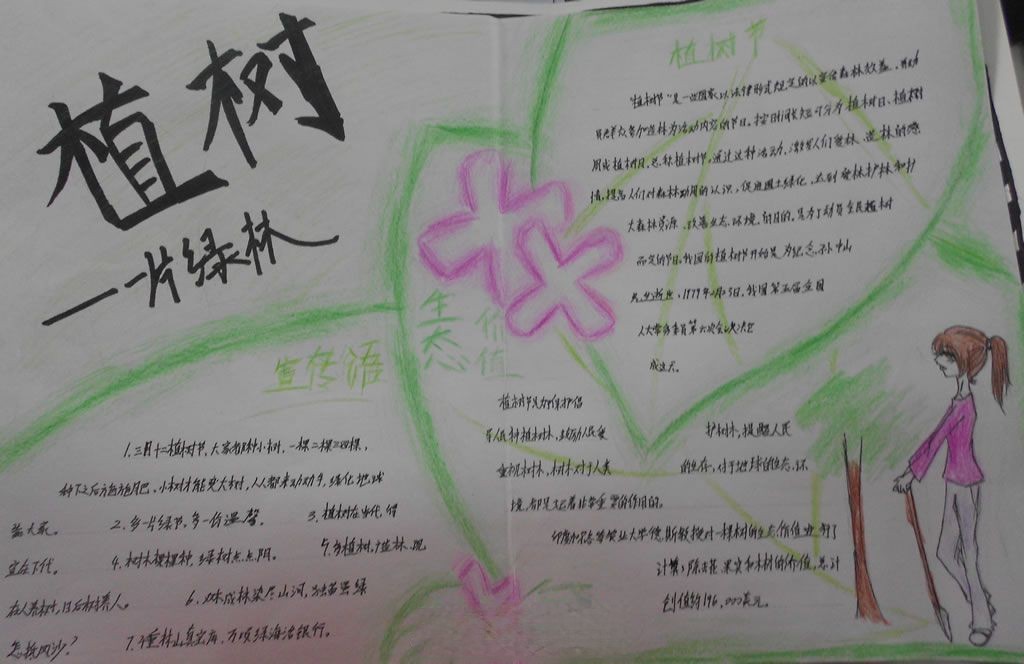 植树
——一片绿林
植树节
"植树节"是一些国家以法律形式规定的以宣传森林效益，并动
员群众参加造林为活动内容的节日。按时间长短可分为植树日、植树
周或植树月，总称植树节，通过这种活动，激发人们爱林、造林的感
情，提高人们对森林功用的认识，促进国土绿化，达到爱林护林和扩
大森林资源、改善生态环境，的目的。是为了动员全民植树
而定的节日。我国的植树节开始是为纪念孙中山
先生逝世，1979年2月23日，我国第五届全国
人大常务委员第六次会议决定
成立
生态价值
植树节是为保护
树林，提醒人民
的生存，对于地球的生态、环
境，都是起着非常重要的作用的。
印度加尔各答农业大学德斯教授对一棵树的生态价值
计算，除去花果实和木材的价值，总计
创值约196,000美元。
宣传语
1.三月十二植树节，大家都种小树，一棵二棵三四棵，
种下之后施施肥，小树才能变大树，人人都来动动手，绿化地球
2.多一片绿节，多一份温馨。 3.植树在当代，得
益在下代。 4.树木棵棵种，绿树点点阴。 5.
在人养树，日后树养人。 6.
怎抵风沙？ 7.千重林山真宝库，万顷绿海活银行。